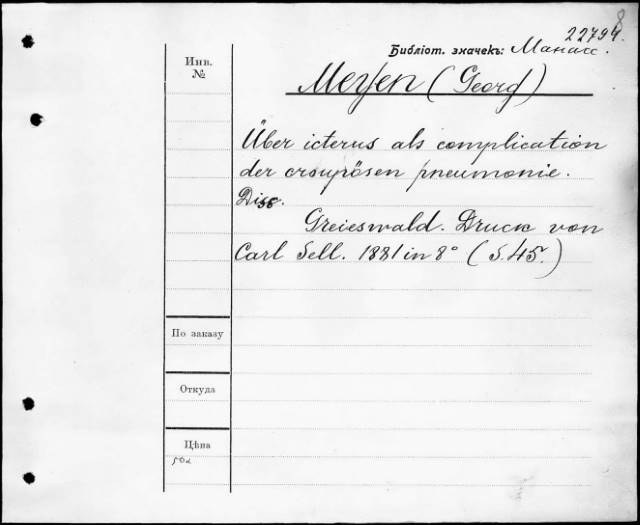 8
22794.
Библіот. значекъ: Манасс.
Инв.
№
Meyen (Georg)
Über icterus als complication
der croupösen pneumonie.
Diss.
Greieswald. Druck von
Carl Sell. 1881 in 8° (S. 45.)
По заказу
Откуда
Цѣна